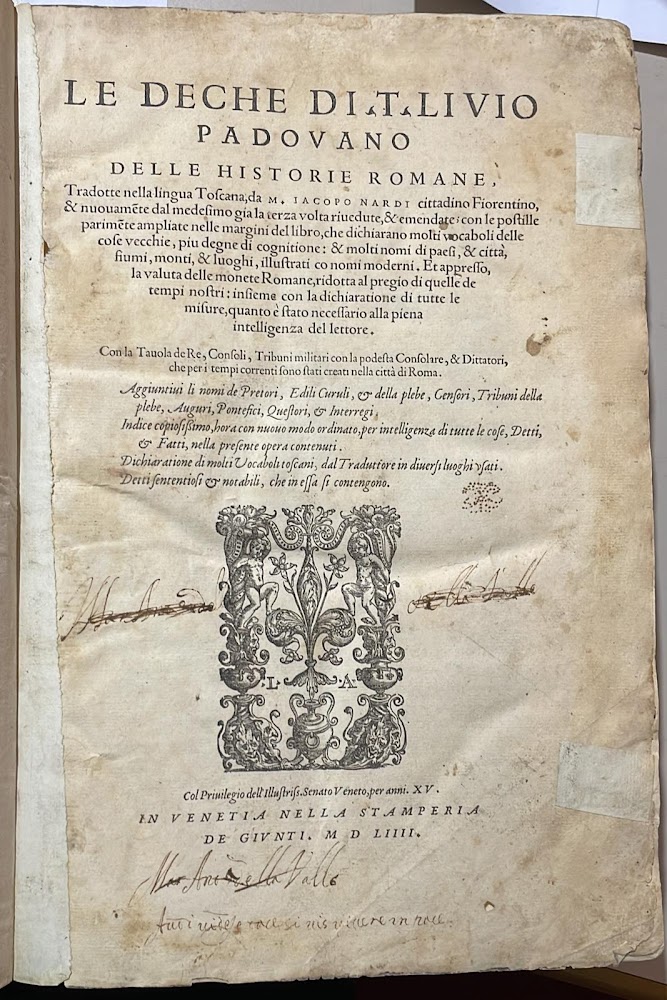 LE DECHE DI.T.LIVIO
PADOVANO
DELLE HISTORIE ROMANE,
Tradotte nella lingua Toscana,da M. IACOPO NARDI cittadino Fiorentino,
& nuouamēte dal medeſimo gia la terza volta riuedute,& emendate: con le poſtille
parimēte ampliate nelle margini del libro,che dichiarano molti vocaboli delle
coſe vecchie, piu degne di cognitione: & molti nomi di paeſi, & città,
fiumi, monti, & luoghi, illuſtrati co nomi moderni. Et appreſſo,
la valuta delle monete Romane,ridotta al pregio di quelle de
tempi noſtri: inſieme con la dichiaratione di tutte le
miſure,quanto è ſtato neceſſario alla piena
intelligenza del lettore.
Con la Tauola de Re, Conſoli, Tribuni militari con la podeſta Conſolare, & Dittatori,
che per i tempi correnti ſono ſtati creati nella città di Roma.
Aggiuntiui li nomi de Pretori, Edili Curuli, & della plebe, Cenſori, Tribuni della
plebe, Auguri, Pontefici, Queſtori, & Interregi,
Indice copioſiſſimo,hora con nuouo modo ordinato,per intelligenza di tutte le coſe, Detti,
& Fatti, nella preſente opera contenuti.
Dichiaratione di molti Vocaboli toſcani, dal Traduttore in diuerſi luoghi vſati.
Detti ſententioſi & notabili, che in eſſa ſi contengono.
L. A
Col Priuilegio dell'Illuſtriſſ. Senato Veneto,per anni. XV.
IN VENETIA NELLA STAMPERIA
DE GIVNTI. M D LIIII.
Valle